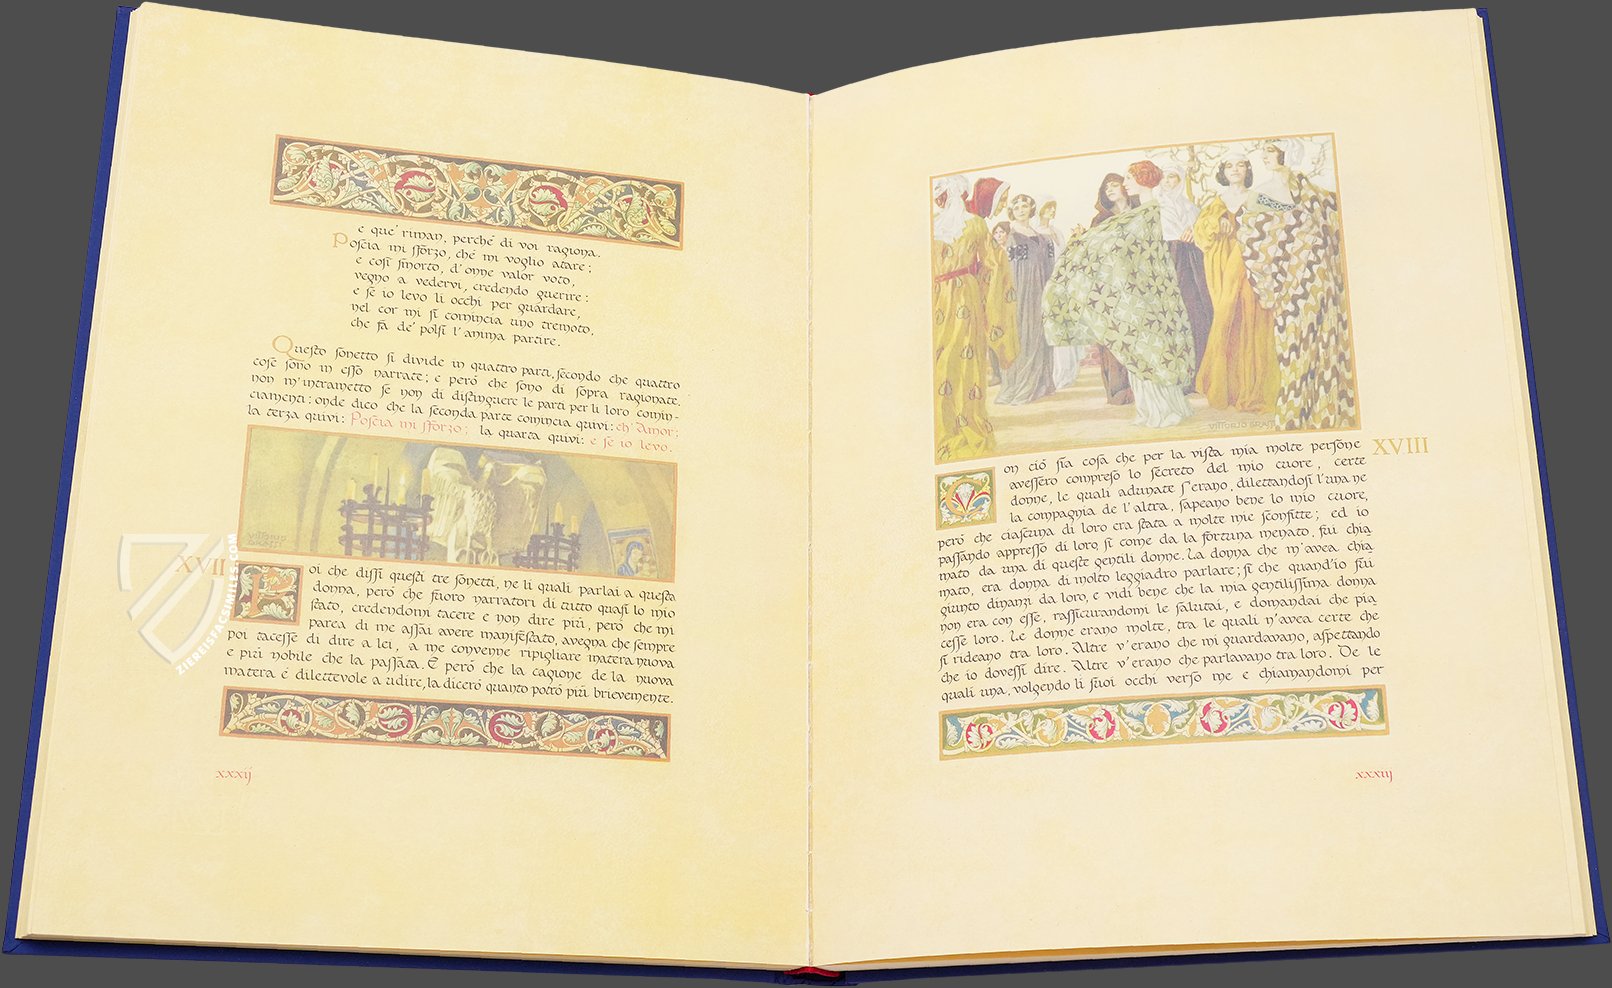 e que' riman, perché di voi ragiona.
Poscia mi sforzo, ché mi voglio atare;
e così smorto, d'onne valor voto,
vegno a vedervi, credendo guerire:
e se io levo li occhi per guardare,
nel cor mi si comincia uno tremoto,
che fa de' polsi l'anima partire.
Questo sonetto si divide in quattro parti, secondo che quattro
cose sono in esso narrate; e però che sono di sopra ragionate,
non m'intrametto se non di distinguere le parti per li loro comin-
ciamenti: onde dico che la seconda parte comincia quivi: ch'Amor;
la terza quivi: Poscia mi sforzo; la quarta quivi: e se io levo.
VITTORIO
GRASSI
XVII
Poi che dissi questi tre sonetti, ne li quali parlai a questa
donna, però che fuoro narratori di tutto quasi lo mio
stato, credendomi tacere e non dire più, però che mi
parea di me assai avere manifestato, avegna che sempre
poi tacesse di dire a lei, a me convenne ripigliare matera nuova
e più nobile che la passata. E però che la cagione de la nuova
matera è dilettevole a udire, la dicerò quanto potrò più brievemente.
xxxij
ZIEREISFACSIMILES.COM
VITTORIO GRASSI
XVIII
Con ciò sia cosa che per la vista mia molte persone
avessero compreso lo secreto del mio cuore, certe
donne, le quali adunate s'erano, dilettandosi l'una ne
la compagnia de l'altra, sapeano bene lo mio cuore,
però che ciascuna di loro era stata a molte mie sconfitte; ed io
passando appresso di loro, sì come da la fortuna menato, fui chia
mato da una di queste gentili donne. La donna che m'avea chia
mato, era donna di molto leggiadro parlare; sì che quand'io fui
giunto dinanzi da loro, e vidi bene che la mia gentilissima donna
non era con esse, rassicurandomi le salutai, e domandai che pia
cesse loro. Le donne erano molte, tra le quali n'avea certe che
si rideano tra loro. Altre v'erano che mi guardavano, aspettando
che io dovessi dire. Altre v'erano che parlavano tra loro. De le
quali una, volgendo li suoi occhi verso me e chiamandomi per
xxxiij